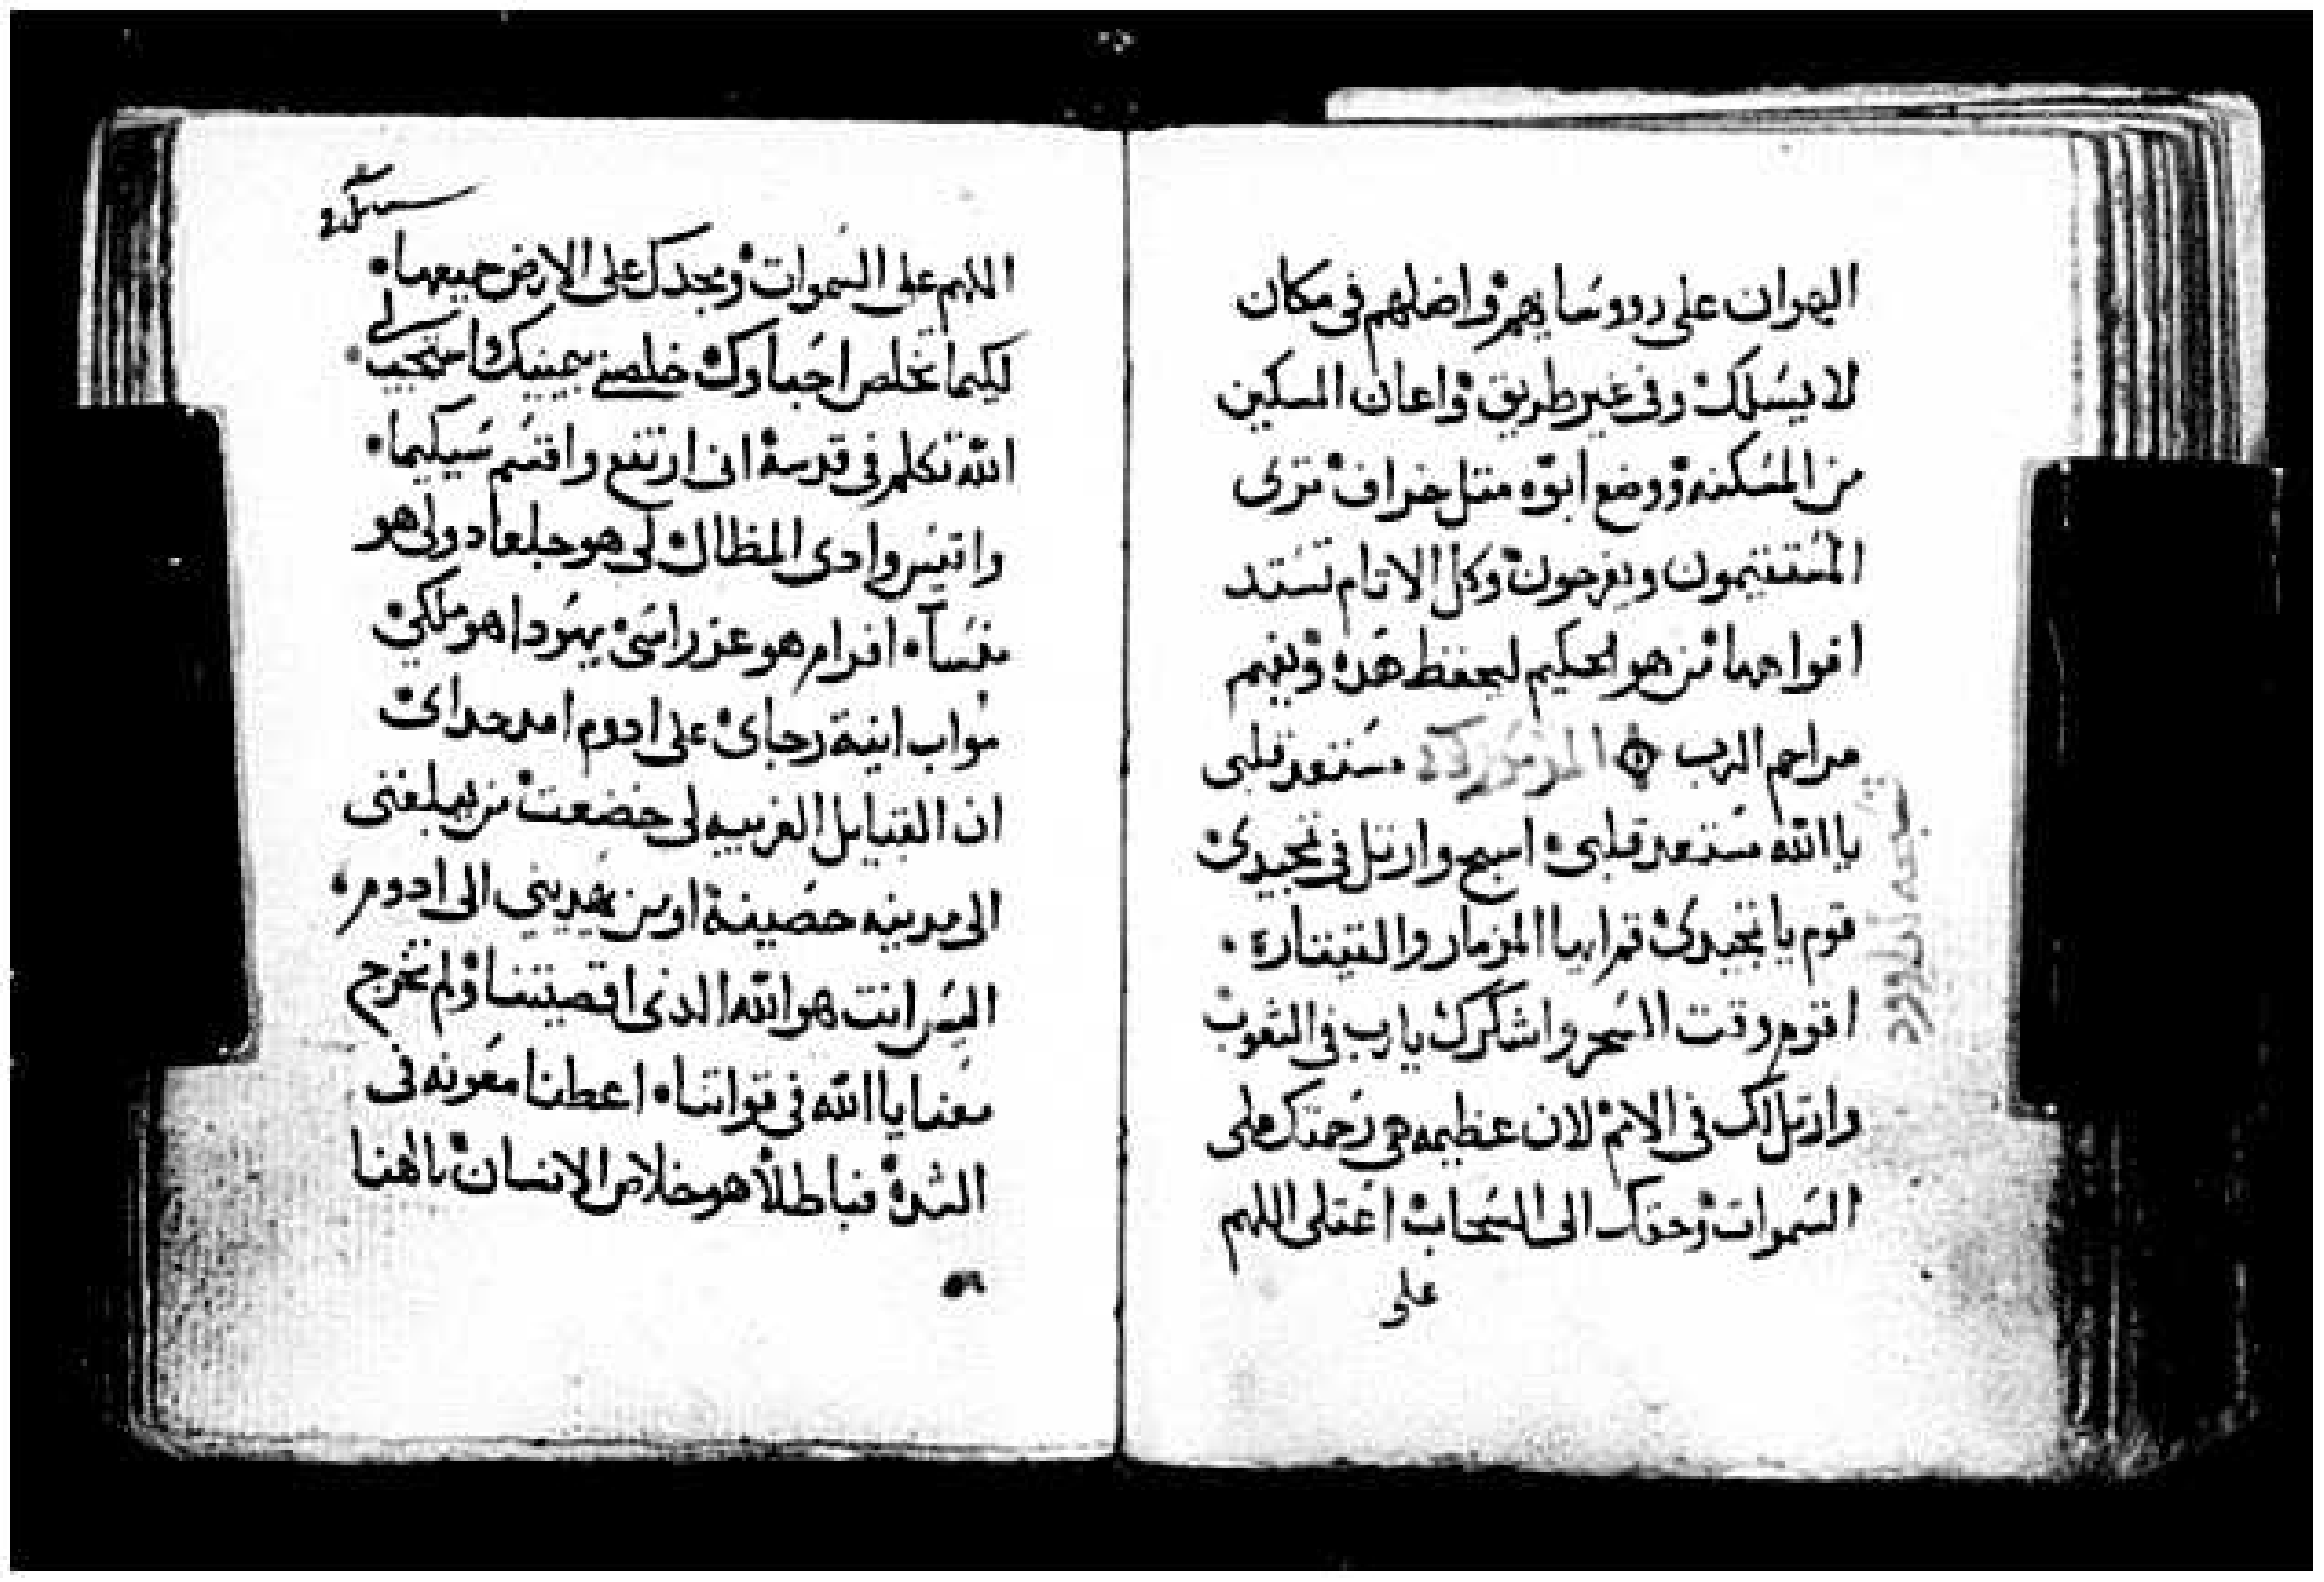 الهوان على رووسايهم واضلهم فى مكان
لا يسلك وفى غير طريق واعان المسكين
من المسكنه ووضع ابوه متل خراف ترى
المستقيمون ويفرحون وكل الاتام تستد
افواهها من هو الحكيم ليحفظ هده وتفهم
مراحم الرب المزمور مستعد قلبى
يا الله مستعد قلبى اسبح وارتل فى تمجيدى
قوم يا تمجيدى قم ايها المزمار والقيتارة
اقوم وقت السحر واشكرك يا رب فى الشعوب
وارتل لك فى الامم لان عظيمه هى رحمتك على
السموات وحقك الى السحاب اعتلى اللهم
على
اللهم على السموات ومجدك على الارض جميعها
لكيما تخلص احباوك خلصنى بيمينك واستجيب لى
الله تكلم فى قدسه انى ارتفع واقسم سيكيما
واقيس وادى المظال لى هو جلعاد ولى هو
منسا افرام هو عز راسى يهودا هو ملكى
مواب انية رجاى على ادوم امد حداى
ان القبايل الغريبه لى خضعت من يبلغنى
الى مدينه حصينة او من يهدينى الى ادوم
اليس انت هو الله الدى اقصيتنا ولم تخرج
معنا يا الله فى قواتنا اعطنا معونه فى
الشدة فباطلا هو خلاص الانسان بالهنا